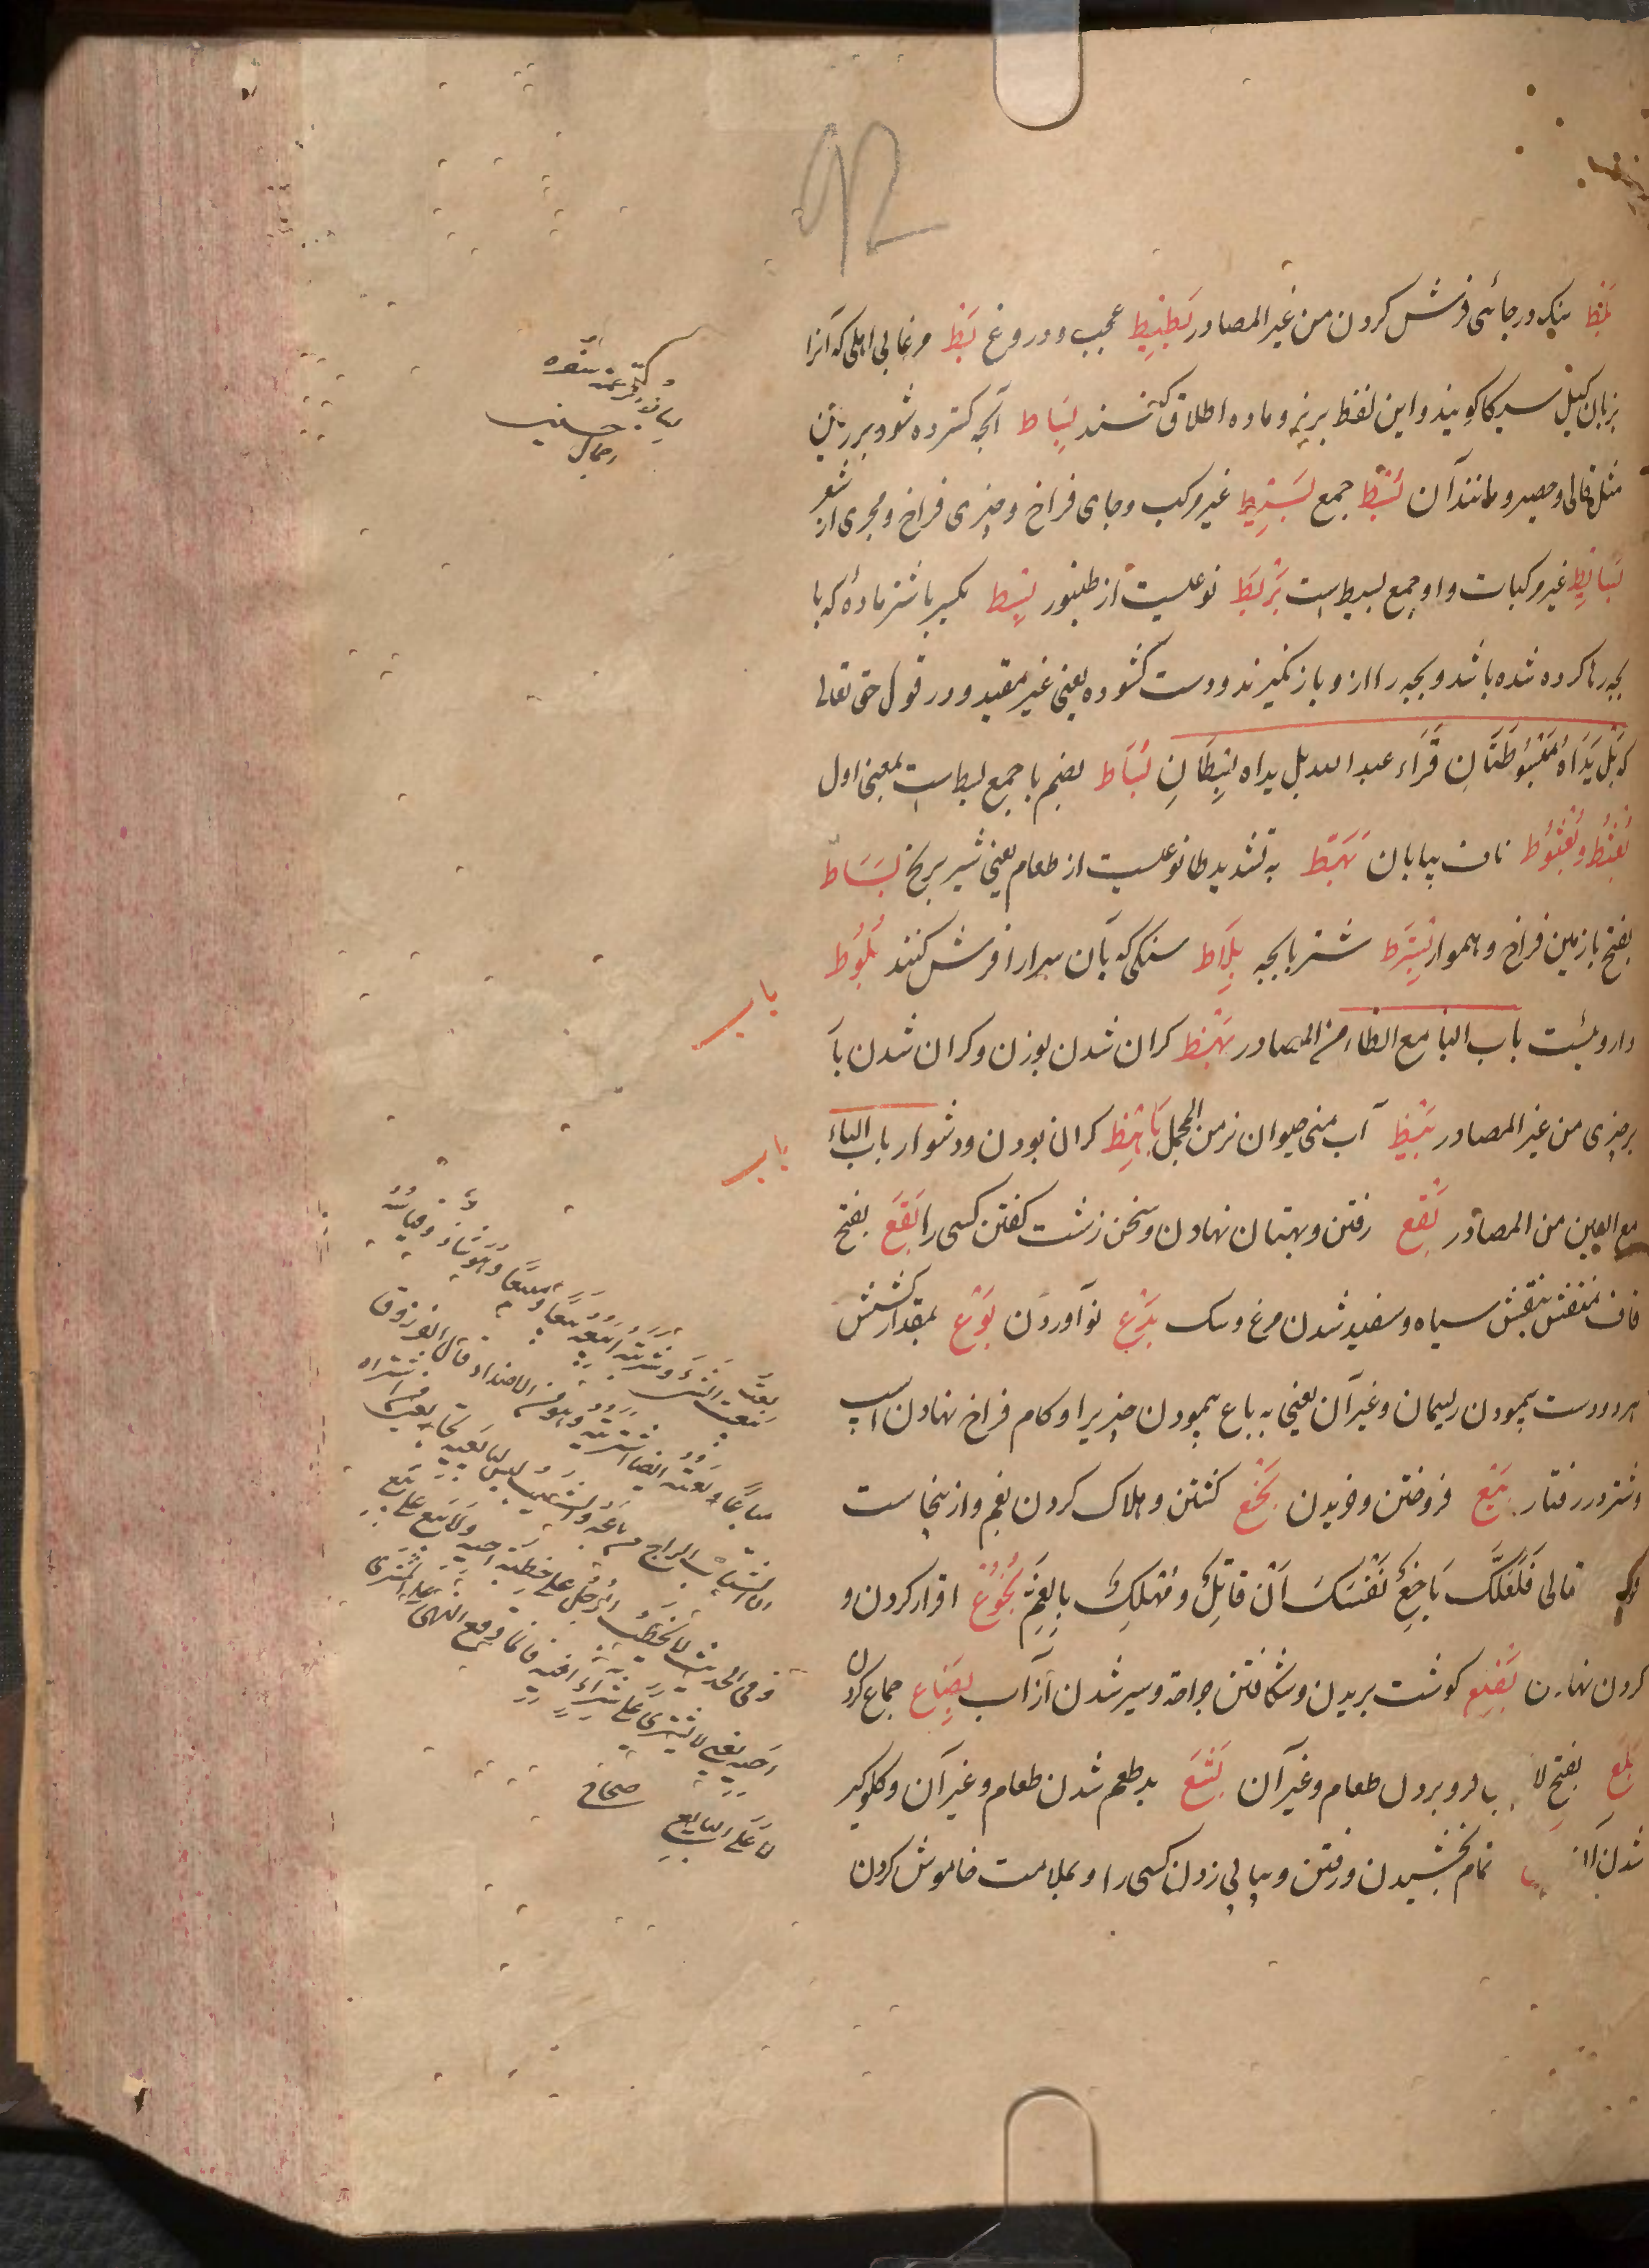 92
بلط بنک در جائی فرش کردن من غیر المصادر بطیط عجب و دروغ بط مرغابی اهلی که آنرا
بزبان کیل سیکا کویند و این لفظ بر نر و ماده اطلاق کنند بساط آنچه کسترده شود بر زمین
مثل قالی و حصیر و مانند آن بسط جمع بسیط غیر مرکب و جای فراخ و چیزی فراخ و بحری از شعر
بسائط غیر مرکبات و او جمع بسیط است بربط نوعیست از طنبور بسط بکسر با شتر ماده که با
بچه رها کرده شده باشد و بچه را از و باز نکیرند و دست کشوده یعنی غیر مقید و در قول حق تعالی
که بَلْ یَدَاهُ مَبْسُوطَتَانِ قَرَاَء عبد الله بل یداه بِسْطَانِ بُسَاط بضم با جمع بسط است بمعنی اول
بُعْثُط و بُعْثُوط ناف بیابان بَهَطّ به تشدید طا نوعیست از طعام یعنی شیر برنج بَسَاط
بفتح با زمین فراخ و هموار شتر با بچه بلاط سنکی که بآن سرا را فرش کنند بَلُّوط
داروئیست باب البا مع الظاء من المصادر بهظ کران شدن بوزن و کران شدن بار
بر چیزی من غیر المصادر بیظ آب منی حیوان نر من المجمل باهظ کران بودن و دشوار باب الباء
مع العین من المصادر بقع رفتن و بهتان نهادن و سخن زشت کفتن کسی را بَقَع بفتح
قاف منقش بنقش سیاه و سفید شدن مرغ و سک بدع نو آوردن بوع بمقدار کشش
هر دو دست پیمودن ریسمان و غیر آن یعنی به باع پیمودن چیزیرا و کام فراخ نهادن اسپ
و شتر در رفتار بیع فروختن و خریدن بخع کشتن و هلاک کردن بغم و ازینجاست
تعالی فَلَعَلَّکَ بَاخِعٌ نَفْسَکَ اَیْ قَاتِلٌ وَ مُهْلِکٌ بِالْغَمِّ بُخُوع اقرار کردن و
کردن نهادن بضع کوشت بریدن و شکافتن جراحة و سیر شدن از آب بِضَاع جماع کردن
بَلَع بفتح لا فرو بردن طعام و غیر آن بَشَع بد طعم شدن طعام و غیر آن و کلوکیر
شدن آن تمام بخشیدن و رفتن و پیاپی زدن کسی را و بملامت خاموش کردن
باب
باب
بعت الشئ شریته ابیعه بیعا و مبیعا و هو شاذ و قیاسه
مباعا و بعته ایضا اشتریته و هو من الاضداد قال الفرزدق
ان الشباب لرابح من باعه و الشیب لیس لبائعیه تجار یعنی من اشتراه
و فی الحدیث لا یخطب الرجل علی خطبة اخیه و لا یبع علی بیع
اخیه یعنی لا یشتری علی شراء اخیه فانما وقع النهی علی المشتری
لا علی البایع صحاح